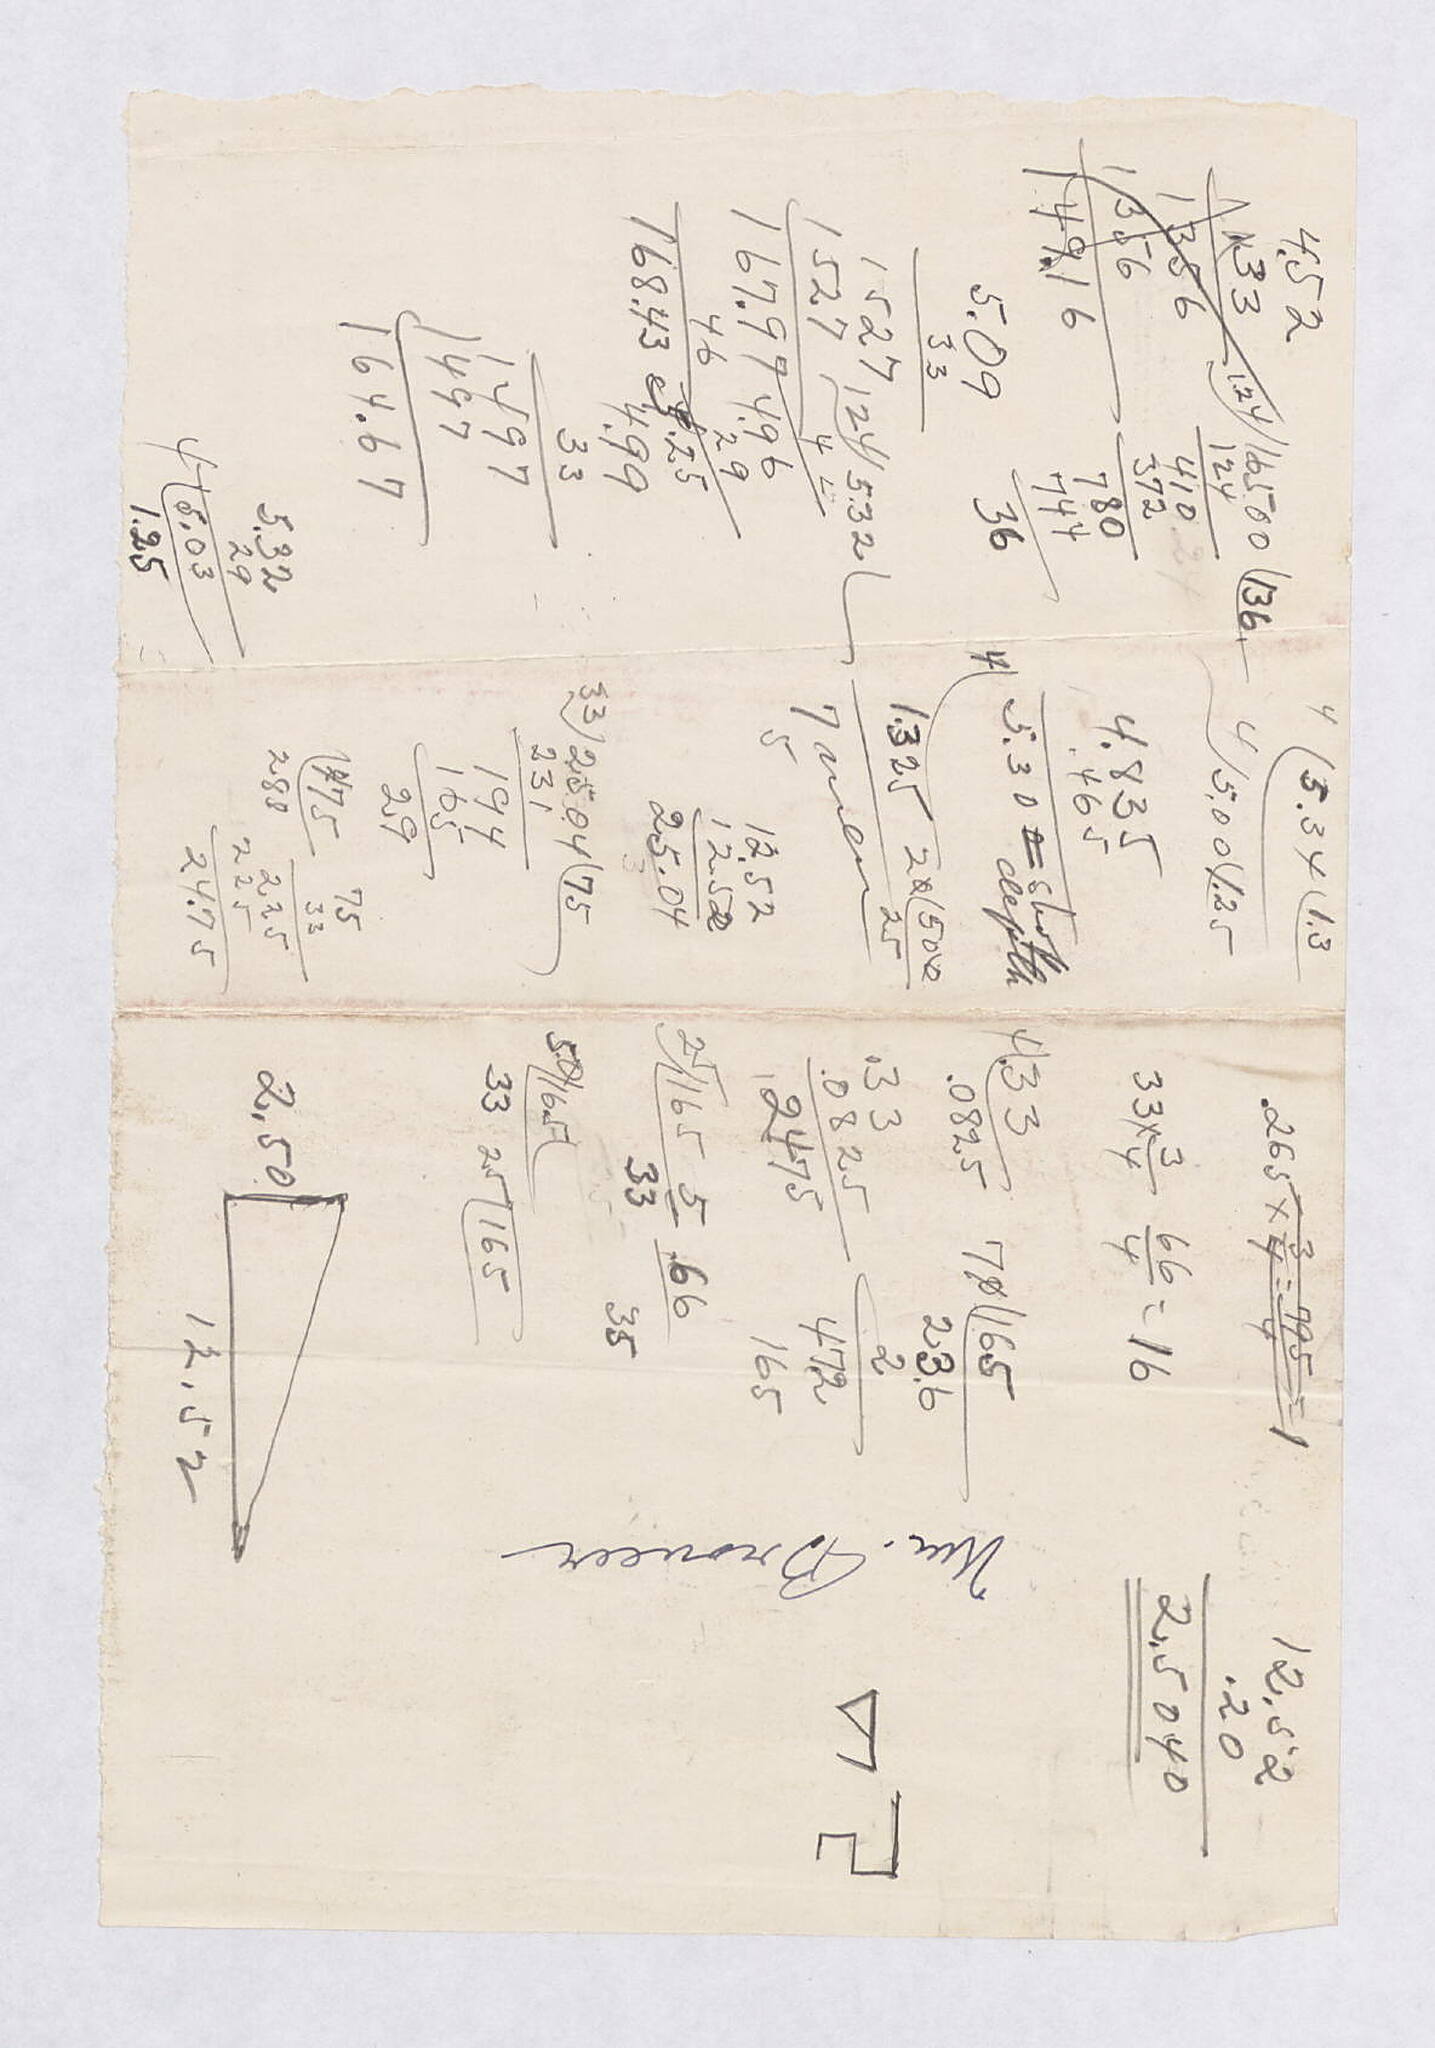 4.52
.33
1356
1356
149.16
124)16500(136
124
410
372
780
744
36
5.09
33
1527
1527
167.97
46
168.43
124)5.32(
4
4.96
29
.25
4.99
33
1497
1497
164.67
5.32
29
4)5.03
1.25
4(5.34(1.3
4)5.00(1.25
4.835
.465
4)5.30=
depth
1.325
20(500
25
7
5
12.52
12.52
25.04
33)25.04(75
231
194
165
29
75
2.80
75
33
225
225
24.75
.265 × 3/4 = .795/4 = 1
33 × 3/4
66/4 = 16
4).33
.0825
.33
.0825
.2475
70(165
2.36
2
4.72
165
25)165
5
33
.66
35
50)165(
33
25(165
2.50
12.52
12.52
.20
2.5040
Mr. Broneer